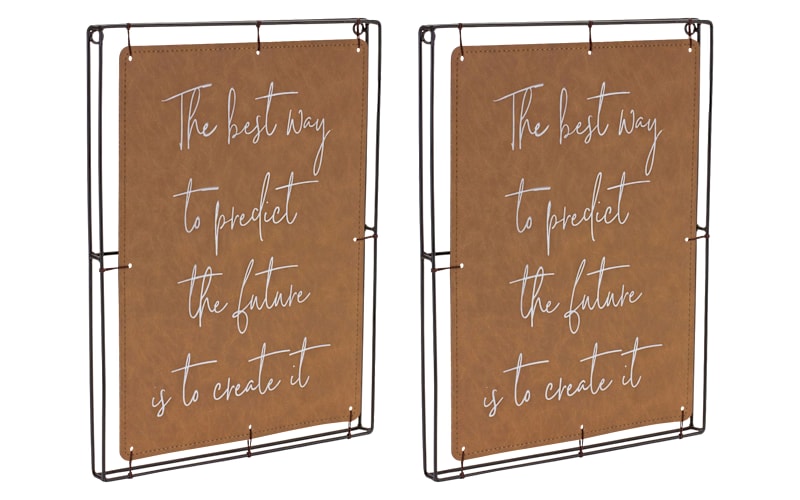 The best way
to predict
the future
is to create it
The best way
to predict
the future
is to create it